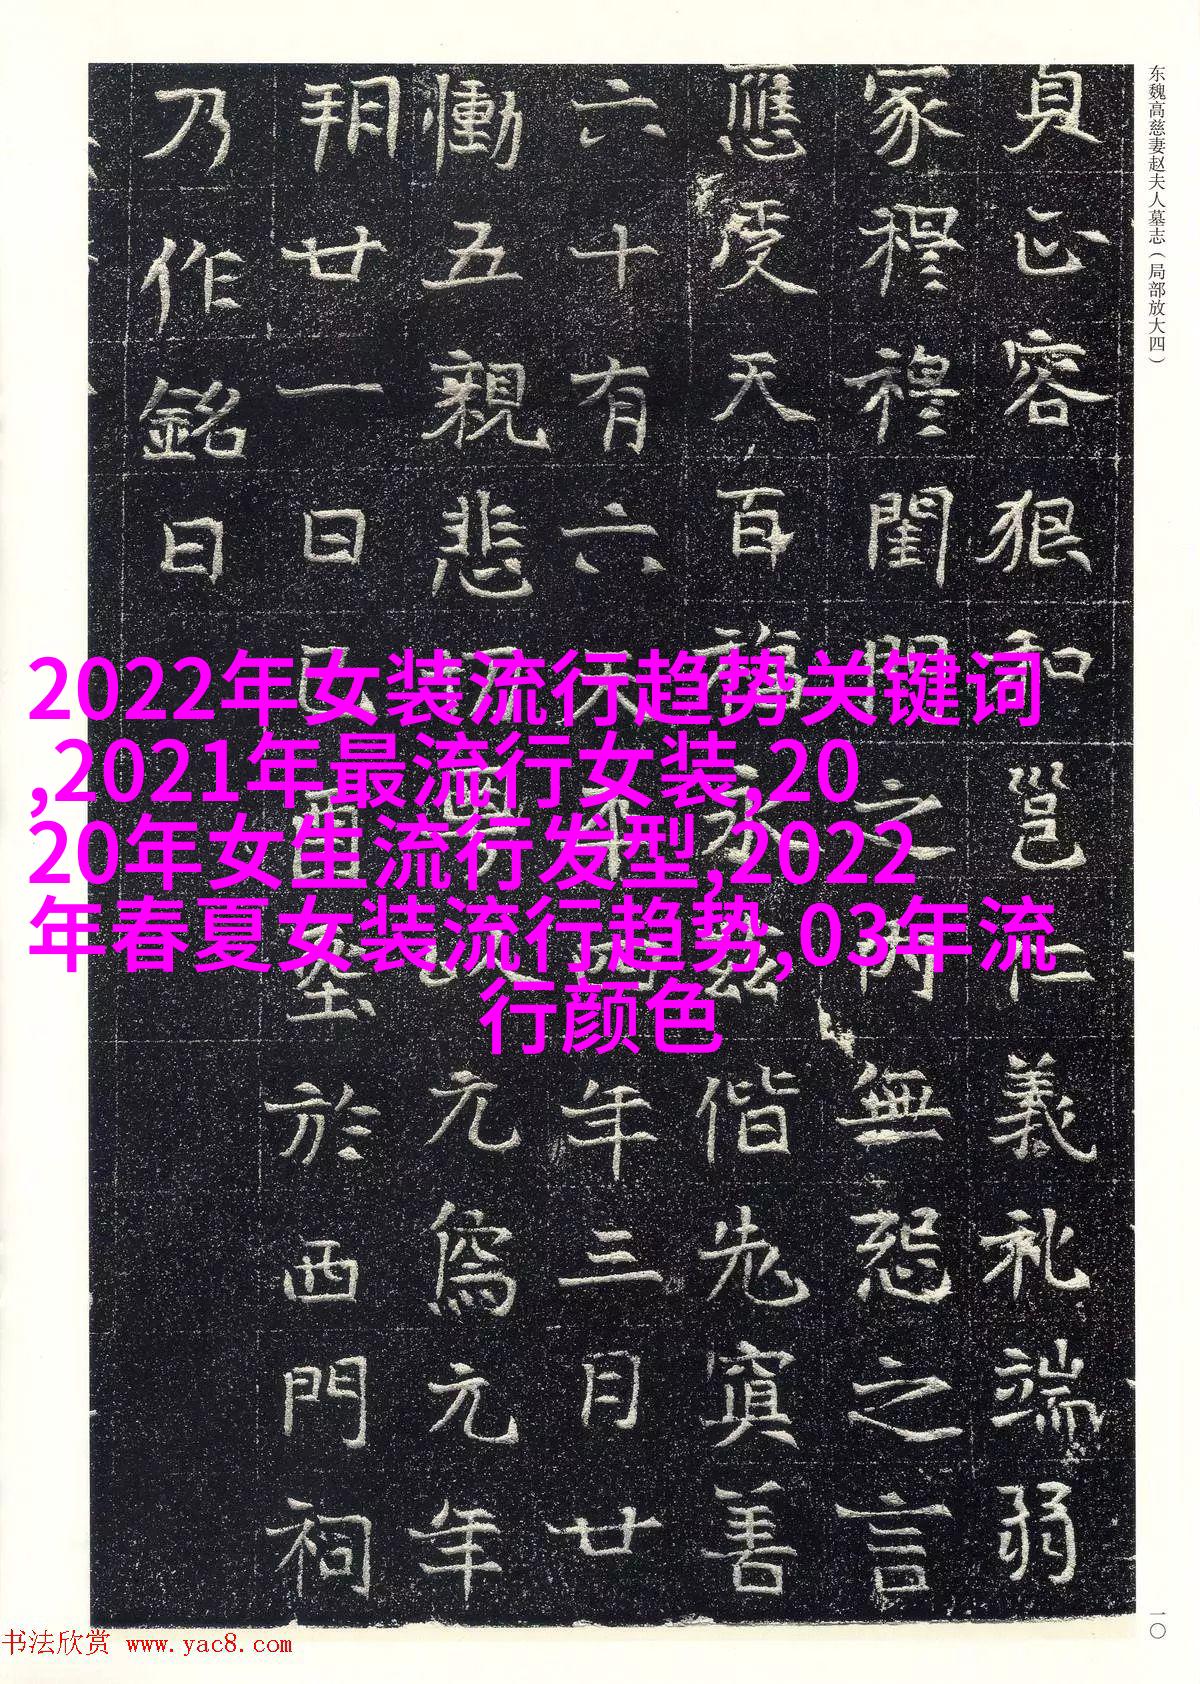 东魏高慈妻赵夫人墓志（局部放大四）
貞正容狠和邕仁義礼端弱
家穆穆閨之無怨之言
應受天百福永茲偕先寘善
六十有六天平四年三月廿
慟五親悲粤以元象元年
朔廿一日己酉於西門祠
乃作銘曰
2022年女装流行趋势关键词
,2021年最流行女装,20
20年女生流行发型,2022
年春夏女装流行趋势,03年流
行颜色
一〇
书法欣赏 www.yac8.com